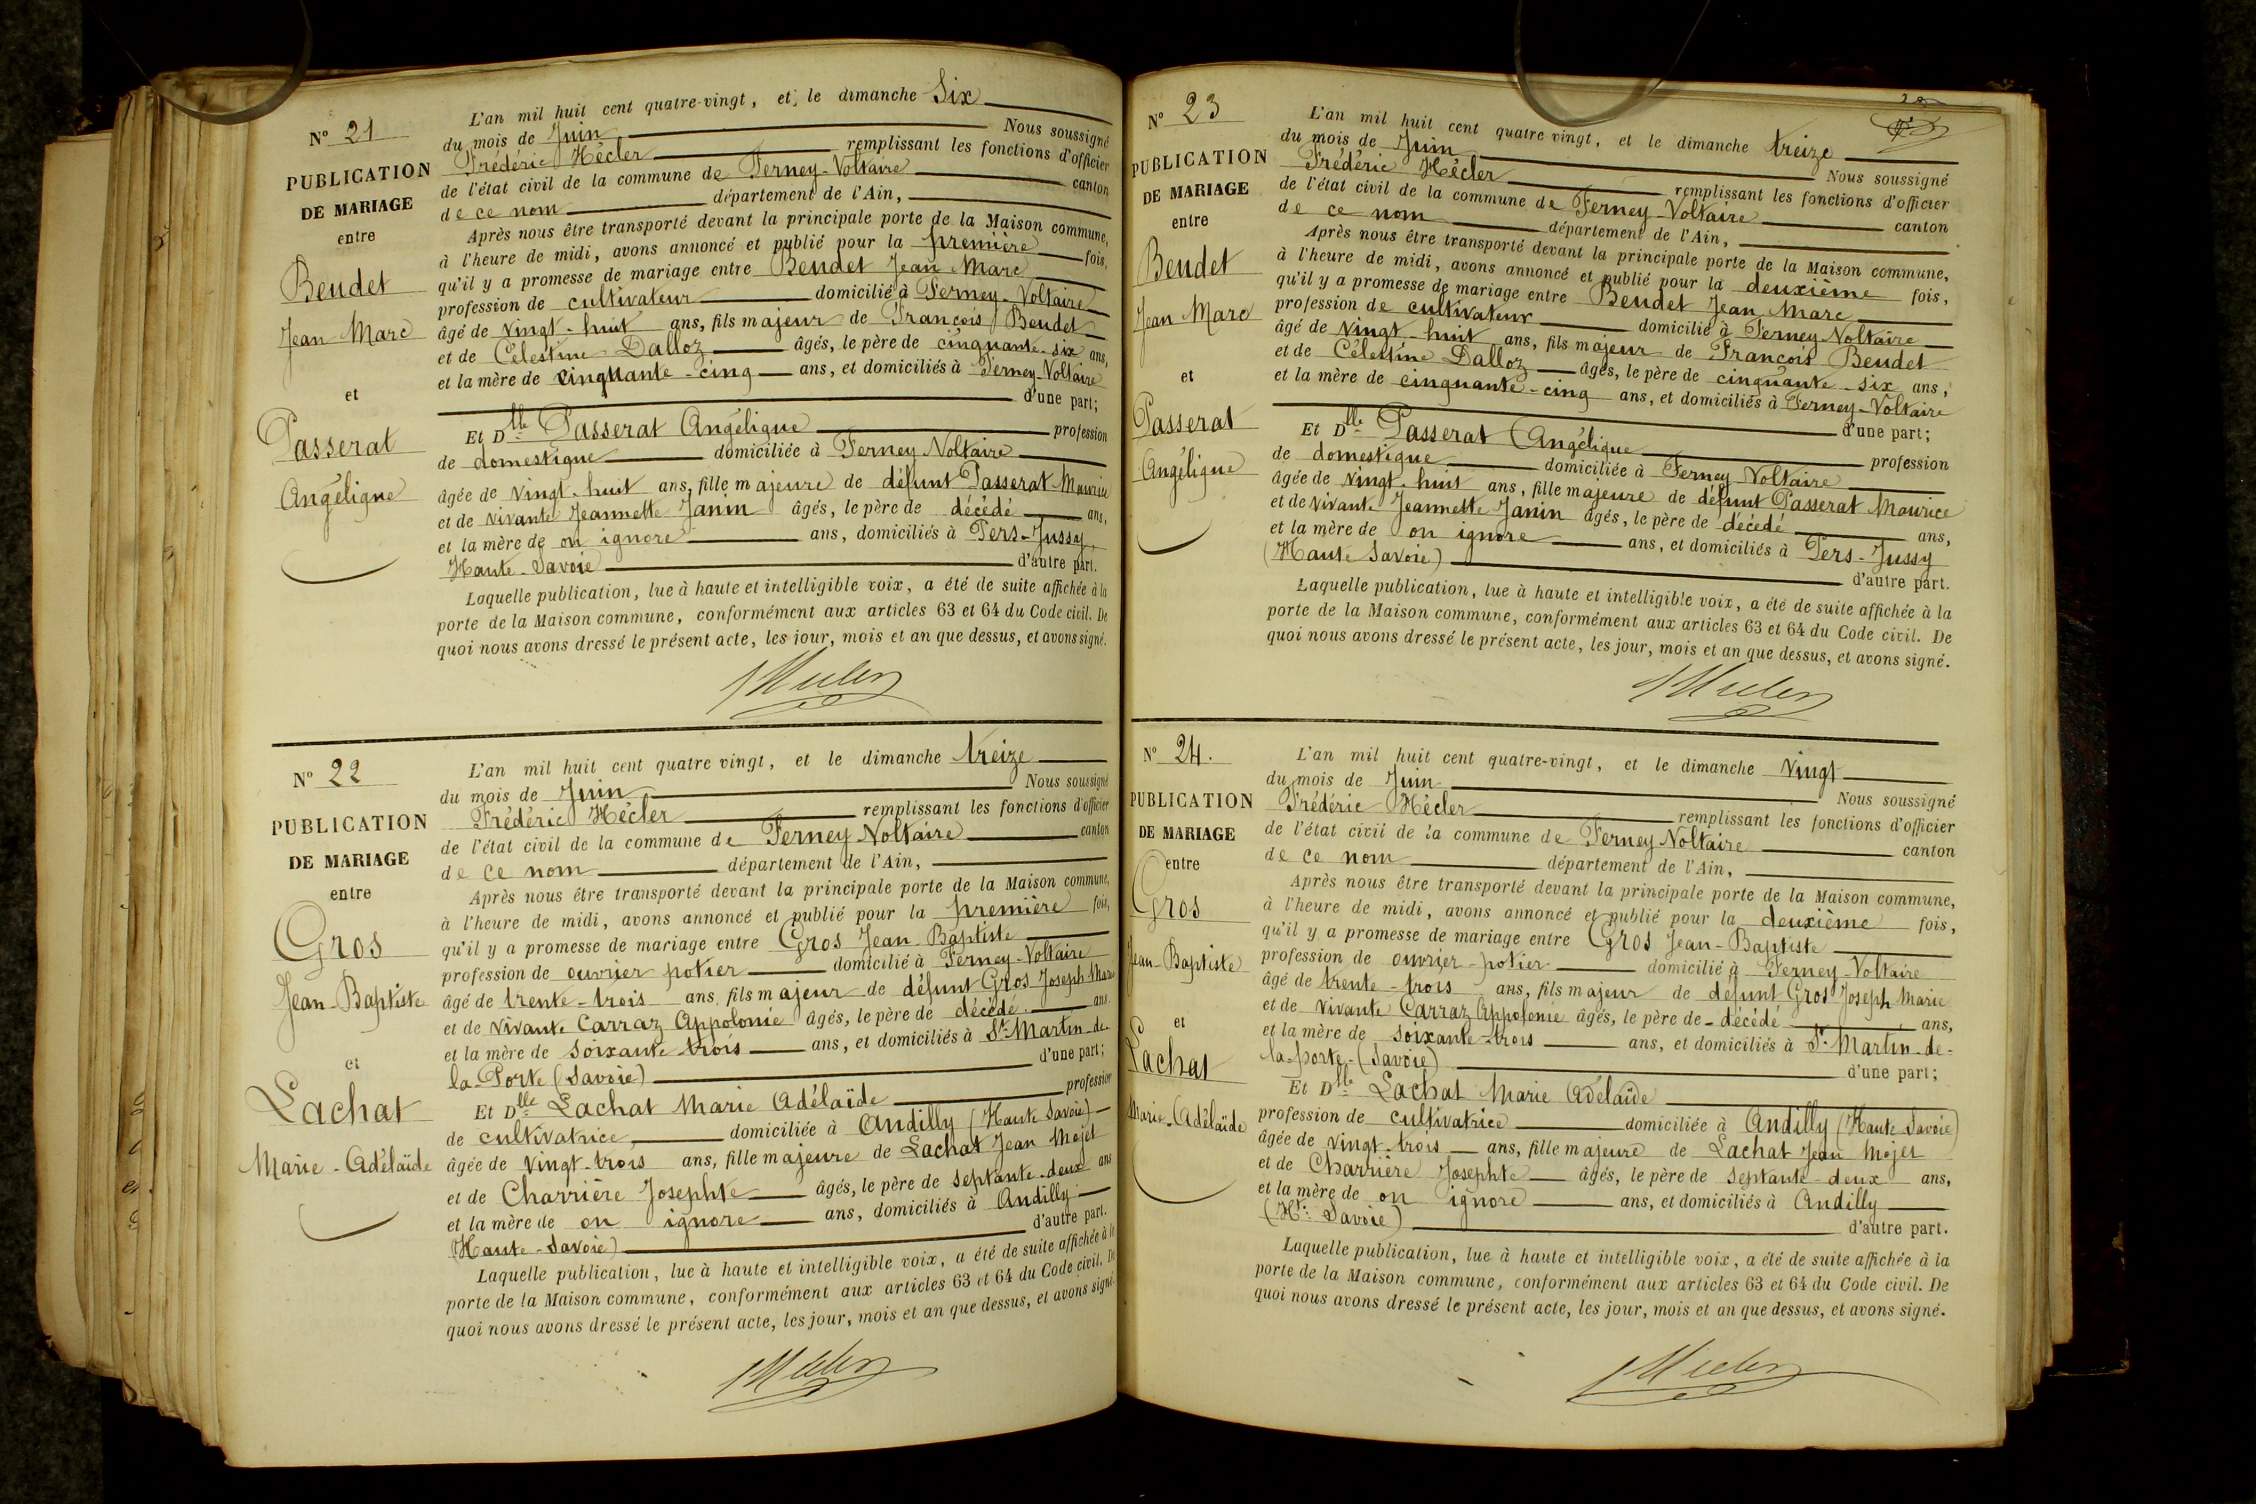 N° 21
PUBLICATION
DE MARIAGE
entre
Beudet
Jean Marc
et
Passerat
Angélique
L'an mil huit cent quatre-vingt, et le dimanche Six
du mois de Juin Nous soussigné
Frédéric Hécler remplissant les fonctions d'officier
de l'état civil de la commune de Ferney-Voltaire canton
de ce nom département de l'Ain,
Après nous être transporté devant la principale porte de la Maison commune,
à l'heure de midi, avons annoncé et publié pour la première fois,
qu'il y a promesse de mariage entre Beudet Jean Marc
profession de cultivateur domicilié à Ferney-Voltaire
âgé de vingt-huit ans, fils majeur de François Beudet
et de Célestine Dalloz âgés, le père de cinquante-six ans,
et la mère de cinquante-cinq ans, et domiciliés à Ferney-Voltaire
d'une part;
Et Dlle Passerat Angélique profession
de domestique domiciliée à Ferney Voltaire
âgée de vingt-huit ans, fille majeure de défunt Passerat Maurice
et de vivante Jeannette Janin âgés, le père de décédé ans,
et la mère de on ignore ans, domiciliés à Pers-Jussy,
Haute-Savoie d'autre part.
Laquelle publication, lue à haute et intelligible voix, a été de suite affichée à la
porte de la Maison commune, conformément aux articles 63 et 64 du Code civil. De
quoi nous avons dressé le présent acte, les jour, mois et an que dessus, et avons signé.
N° 22
PUBLICATION
DE MARIAGE
entre
Gros
Jean-Baptiste
et
Lachat
Marie-Adélaïde
L'an mil huit cent quatre vingt, et le dimanche treize
du mois de Juin Nous soussigné
Frédéric Hécler remplissant les fonctions d'officier
de l'état civil de la commune de Ferney Voltaire canton
de ce nom département de l'Ain,
Après nous être transporté devant la principale porte de la Maison commune,
à l'heure de midi, avons annoncé et publié pour la première fois,
qu'il y a promesse de mariage entre Gros Jean-Baptiste
profession de ouvrier potier domicilié à Ferney-Voltaire
âgé de trente-trois ans, fils majeur de défunt Gros Joseph Marie
et de vivante Carraz Appolonie âgés, le père de décédé ans
et la mère de soixante trois ans, et domiciliés à St Martin-de-
la-Porte (Savoie) d'une part;
Et Dlle Lachat Marie Adélaïde profession
de cultivatrice domiciliée à Andilly (Haute Savoie)
âgée de vingt-trois ans, fille majeure de Lachat Jean Mojet
et de Charrière Josephte âgés, le père de septante-deux ans
et la mère de on ignore ans, domiciliés à Andilly
(Haute-Savoie) d'autre part.
Laquelle publication, lue à haute et intelligible voix, a été de suite affichée à la
porte de la Maison commune, conformément aux articles 63 et 64 du Code civil. De
quoi nous avons dressé le présent acte, les jour, mois et an que dessus, et avons signé.
N° 23
PUBLICATION
DE MARIAGE
entre
Beudet
Jean Marc
et
Passerat
Angélique
L'an mil huit cent quatre vingt, et le dimanche treize
du mois de Juin Nous soussigné
Frédéric Hécler remplissant les fonctions d'officier
de l'état civil de la commune de Ferney-Voltaire canton
de ce nom département de l'Ain,
Après nous être transporté devant la principale porte de la Maison commune,
à l'heure de midi, avons annoncé et publié pour la deuxième fois,
qu'il y a promesse de mariage entre Beudet Jean Marc
profession de cultivateur domicilié à Ferney Voltaire
âgé de vingt huit ans, fils majeur de François Beudet
et de Célestine Dalloz âgés, le père de cinquante-six ans,
et la mère de cinquante-cinq ans, et domiciliés à Ferney-Voltaire
d'une part;
Et Dlle Passerat Angélique profession
de domestique domiciliée à Ferney Voltaire
âgée de vingt-huit ans, fille majeure de défunt Passerat Maurice
et de vivante Jeannette Janin âgés, le père de décédé ans,
et la mère de on ignore ans, et domiciliés à Pers-Jussy
(Haute Savoie) d'autre part.
Laquelle publication, lue à haute et intelligible voix, a été de suite affichée à la
porte de la Maison commune, conformément aux articles 63 et 64 du Code civil. De
quoi nous avons dressé le présent acte, les jour, mois et an que dessus, et avons signé.
N° 24.
PUBLICATION
DE MARIAGE
entre
Gros
Jean-Baptiste
et
Lachat
Marie-Adélaïde
L'an mil huit cent quatre-vingt, et le dimanche Vingt
du mois de Juin Nous soussigné
Frédéric Hécler remplissant les fonctions d'officier
de l'état civil de la commune de Ferney Voltaire canton
de ce nom département de l'Ain,
Après nous être transporté devant la principale porte de la Maison commune,
à l'heure de midi, avons annoncé et publié pour la deuxième fois,
qu'il y a promesse de mariage entre Gros Jean-Baptiste
profession de ouvrier-potier domicilié à Ferney-Voltaire
âgé de trente-trois ans, fils majeur de défunt Gros Joseph Marie
et de vivante Carraz Appolonie âgés, le père de décédé ans,
et la mère de soixante-trois ans, et domiciliés à St Martin-de-
la-porte-(Savoie) d'une part;
Et Dlle Lachat Marie Adélaïde
profession de cultivatrice domiciliée à Andilly (Haute Savoie)
âgée de vingt-trois ans, fille majeure de Lachat Jean Mojet
et de Charrière Josephte âgés, le père de septante-deux ans,
et la mère de on ignore ans, et domiciliés à Andilly
(Hte Savoie) d'autre part.
Laquelle publication, lue à haute et intelligible voix, a été de suite affichée à la
porte de la Maison commune, conformément aux articles 63 et 64 du Code civil. De
quoi nous avons dressé le présent acte, les jour, mois et an que dessus, et avons signé.